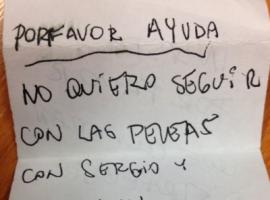 PORFAVOR AYUDA
NO QUIERO SEGUIR
CON LAS PELEAS
CON SERGIO Y